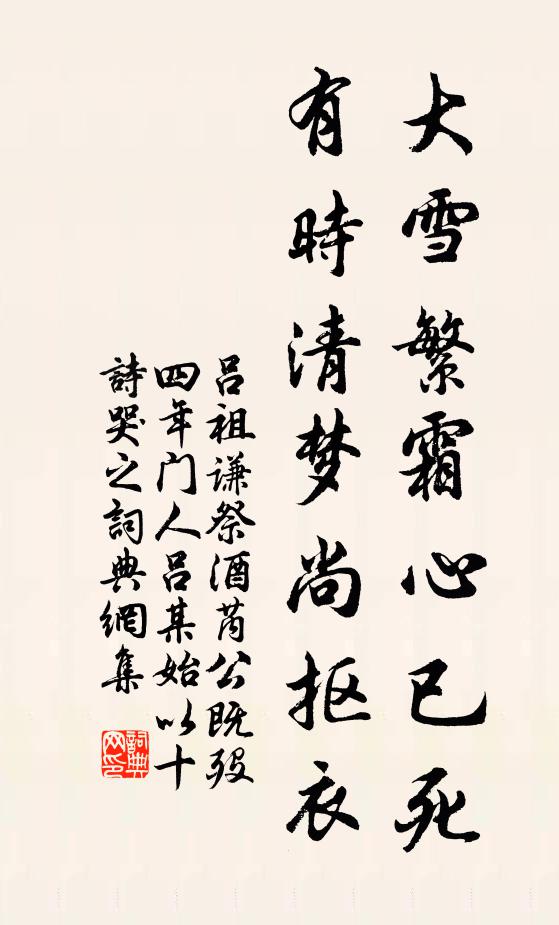 大雪繁霜心已死
有時清梦尚抠衣
吕祖谦祭酒芮公既殁
四年门人吕某始以十
詩哭之詞典網集
詞典网印